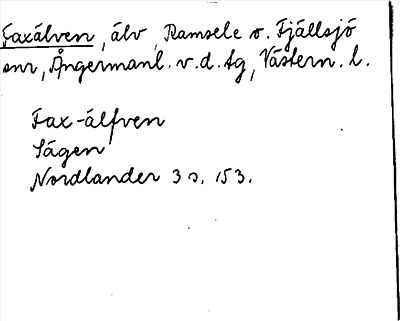 Faxälven, älv, Ramsele o. Fjällsjö
snr, Ångermanl. v.d. tg, Västern. l.
Fax-älfven
Sägen
Nordlander 3 s. 153.